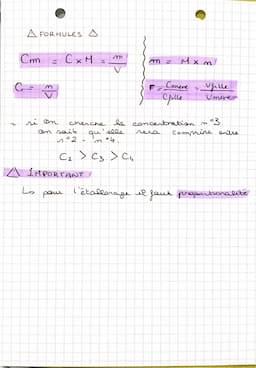 △ FORMULES △
Cm = C x M = m/V
m = M x n
C = n/V
F = Cmère/Cfille = Vfille/Vmère
→ si on cherche la concentration n°3
on sait qu'elle sera comprise entre
n°2 - n°4.
C2 > C3 > C4
△ IMPORTANT
↳ pour l'étallonage il faut proportionnalité